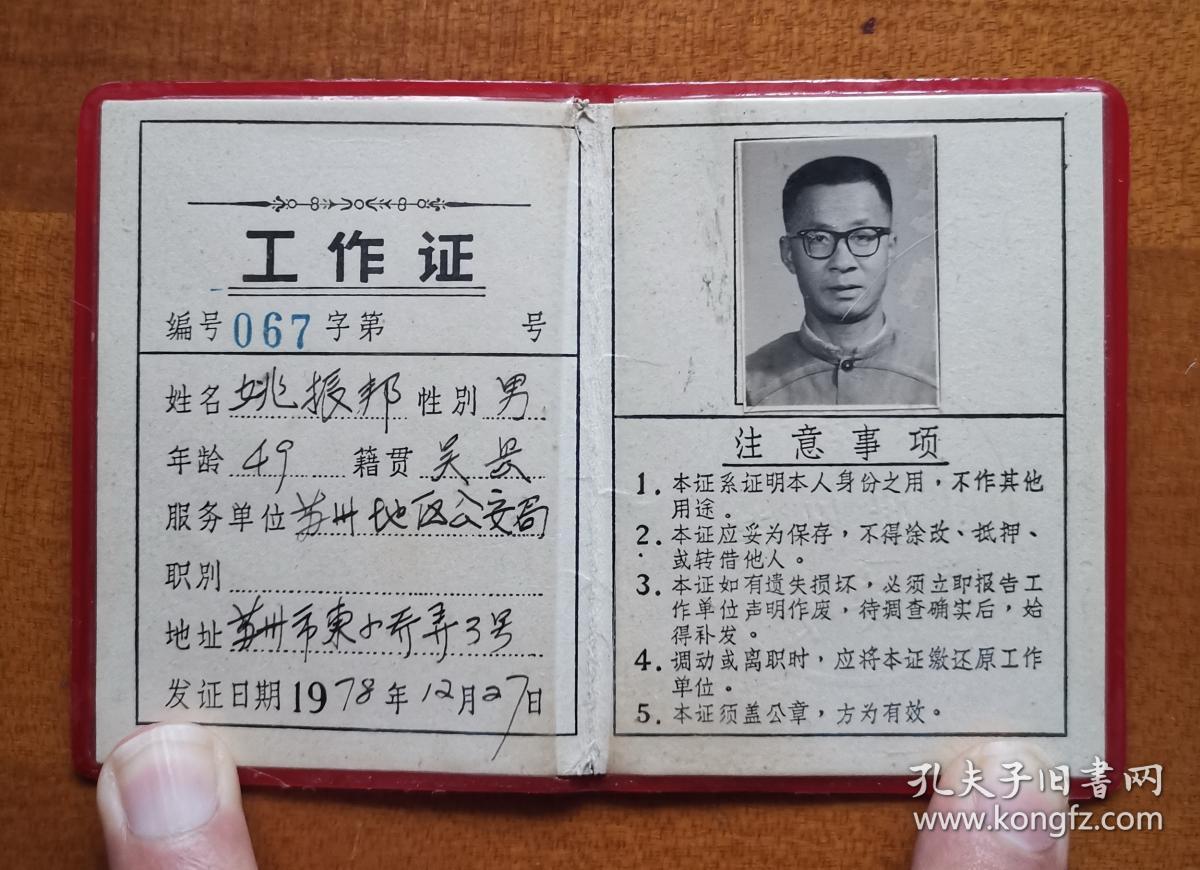 工作证
编号 067 字第 号
姓名 姚振邦 性别 男
年龄 49 籍贯 吴县
服务单位 苏州地区公安局
职别
地址 苏州市東小桥弄3号
发证日期 1978年12月27日
注意事项
1. 本证系证明本人身份之用，不作其他
用途。
2. 本证应妥为保存，不得涂改、抵押、
或转借他人。
3. 本证如有遗失损坏，必须立即报告工
作单位声明作废，待调查确实后，始
得补发。
4. 调动或离职时，应将本证缴还原工作
单位。
5. 本证须盖公章，方为有效。
孔夫子旧书网
www.kongfz.com